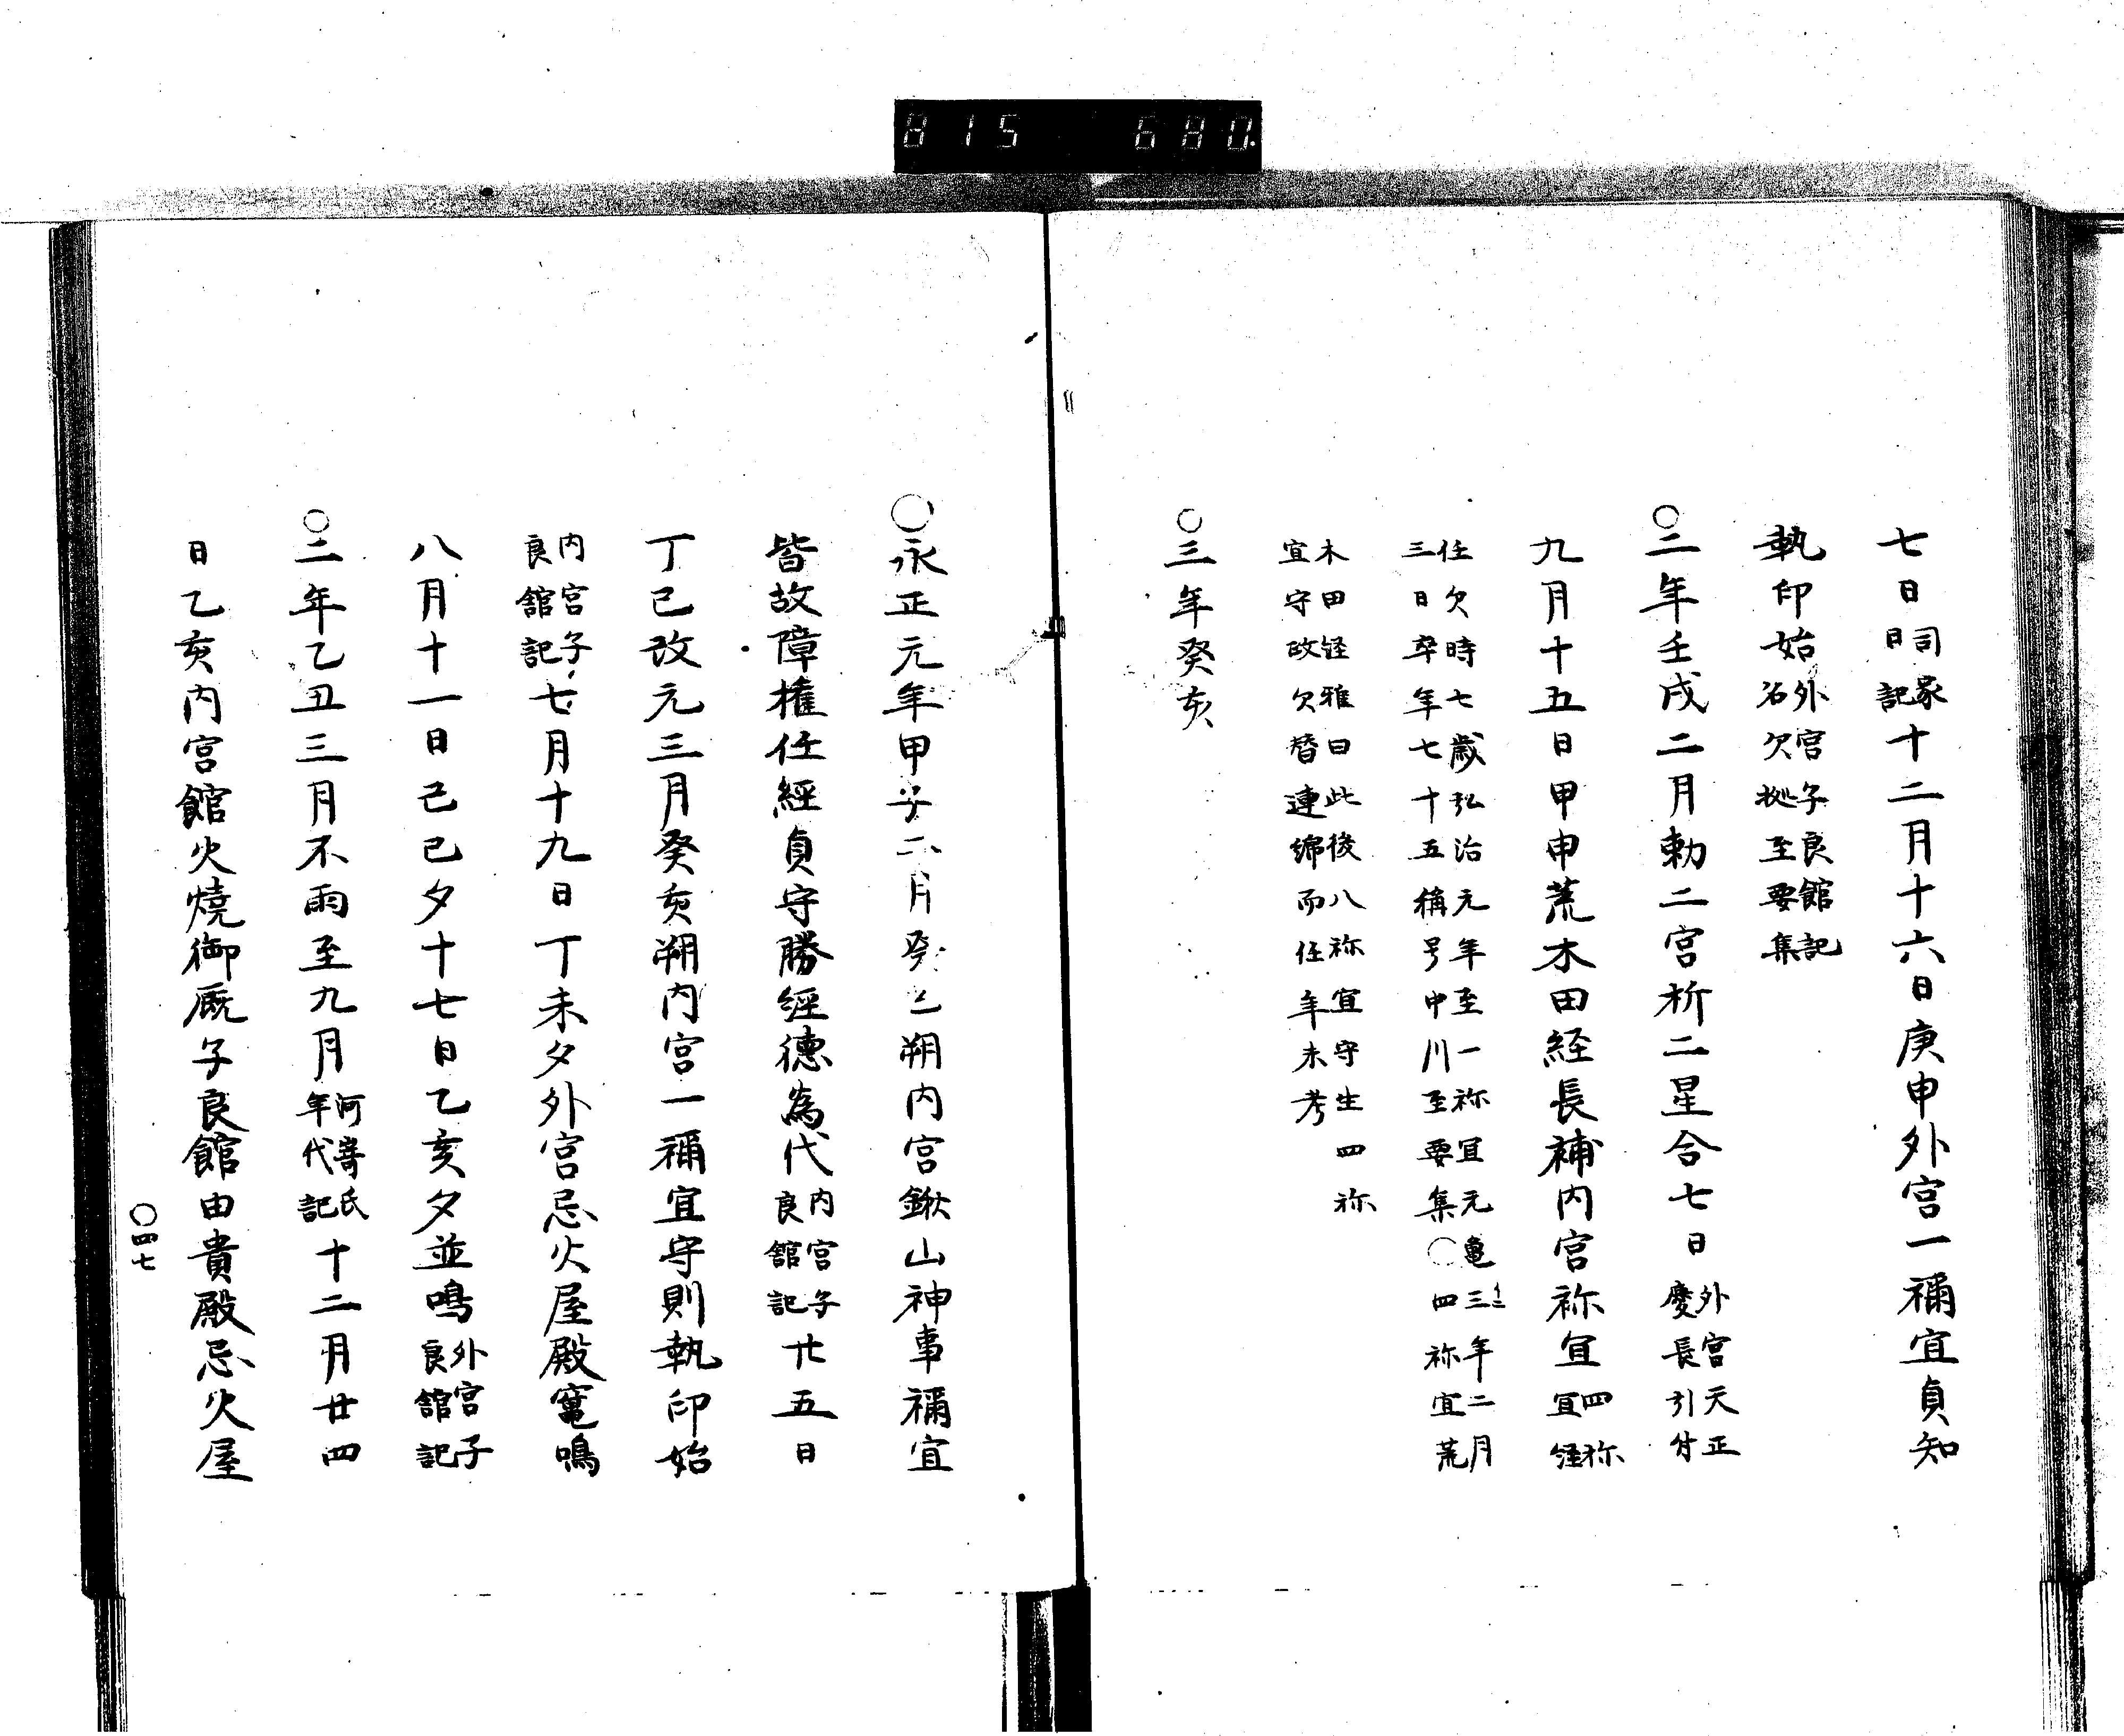 815 680.
七日司家日記十二月十六日庚申外宮一禰宜貞知
執印始外宮子良館記沼欠拠至要集
〇二年壬戌二月勅二宮祈二星合七日外宮天正慶長引付
九月十五日甲申荒木田経長補内宮祢宜四祢宜経
任欠時七七歳弘治元年至一祢宜元亀三年二月
三日卒年七十五稱号中川至要集〇四祢宜荒
木田経雅曰此後八祢宜守生四祢
宜守政欠替連綿而任年未考
〇三年癸亥
〇永正元年甲子二月癸巳朔内宮鍬山神事禰宜
皆故障権任經貞守勝經德為代内宮子良館記廿五日
丁巳改元三月癸亥朔内宮一禰宜守則執印始
内宮子良館記七月十九日丁未夕外宮忌火屋殿竃鳴
八月十一日己巳夕十七日乙亥夕並鳴外宮子良館記
〇二年乙丑三月不雨至九月河嵜氏年代記十二月廿四
日乙亥内宮館火燒御厩子良館由貴殿忌火屋
〇四七